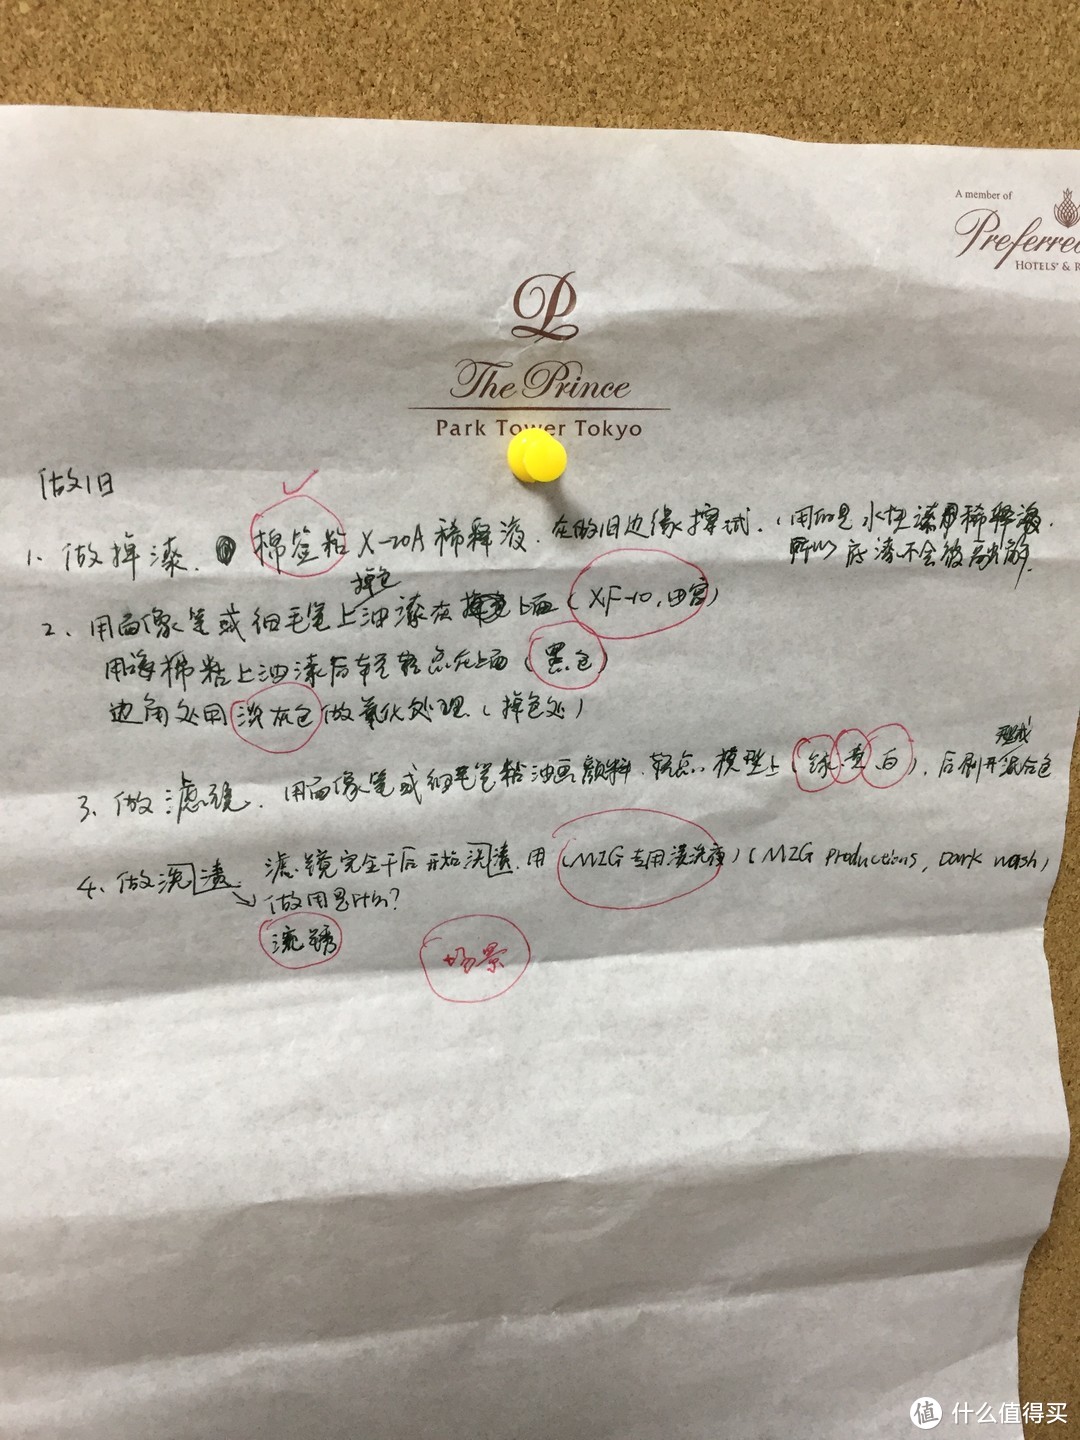 A member of
Preferred
HOTELS® & R
The Prince
Park Tower Tokyo
做旧
1、做掉漆、棉签粘X-20A稀释液、在做旧边缘擦拭、(用的是水性漆用稀释液、
所以底漆不会被融解
掉色
2、用面像笔或细毛笔上油漆在上面(XF-10,田宫)
用海棉粘上油漆后轻轻点在上面(黑色)
边角处用淡灰色做氧化处理、(掉色处)
3、做滤镜、用面像笔或细毛笔粘油画颜料、轻点、模型上(绿、黄、白)、后刷开混合色
4、做洗渍 滤镜完全干后开始洗渍、用(MIG专用渍洗液)(MIG productions, Dark wash)
做用是什么?
流锈
场景
值 什么值得买